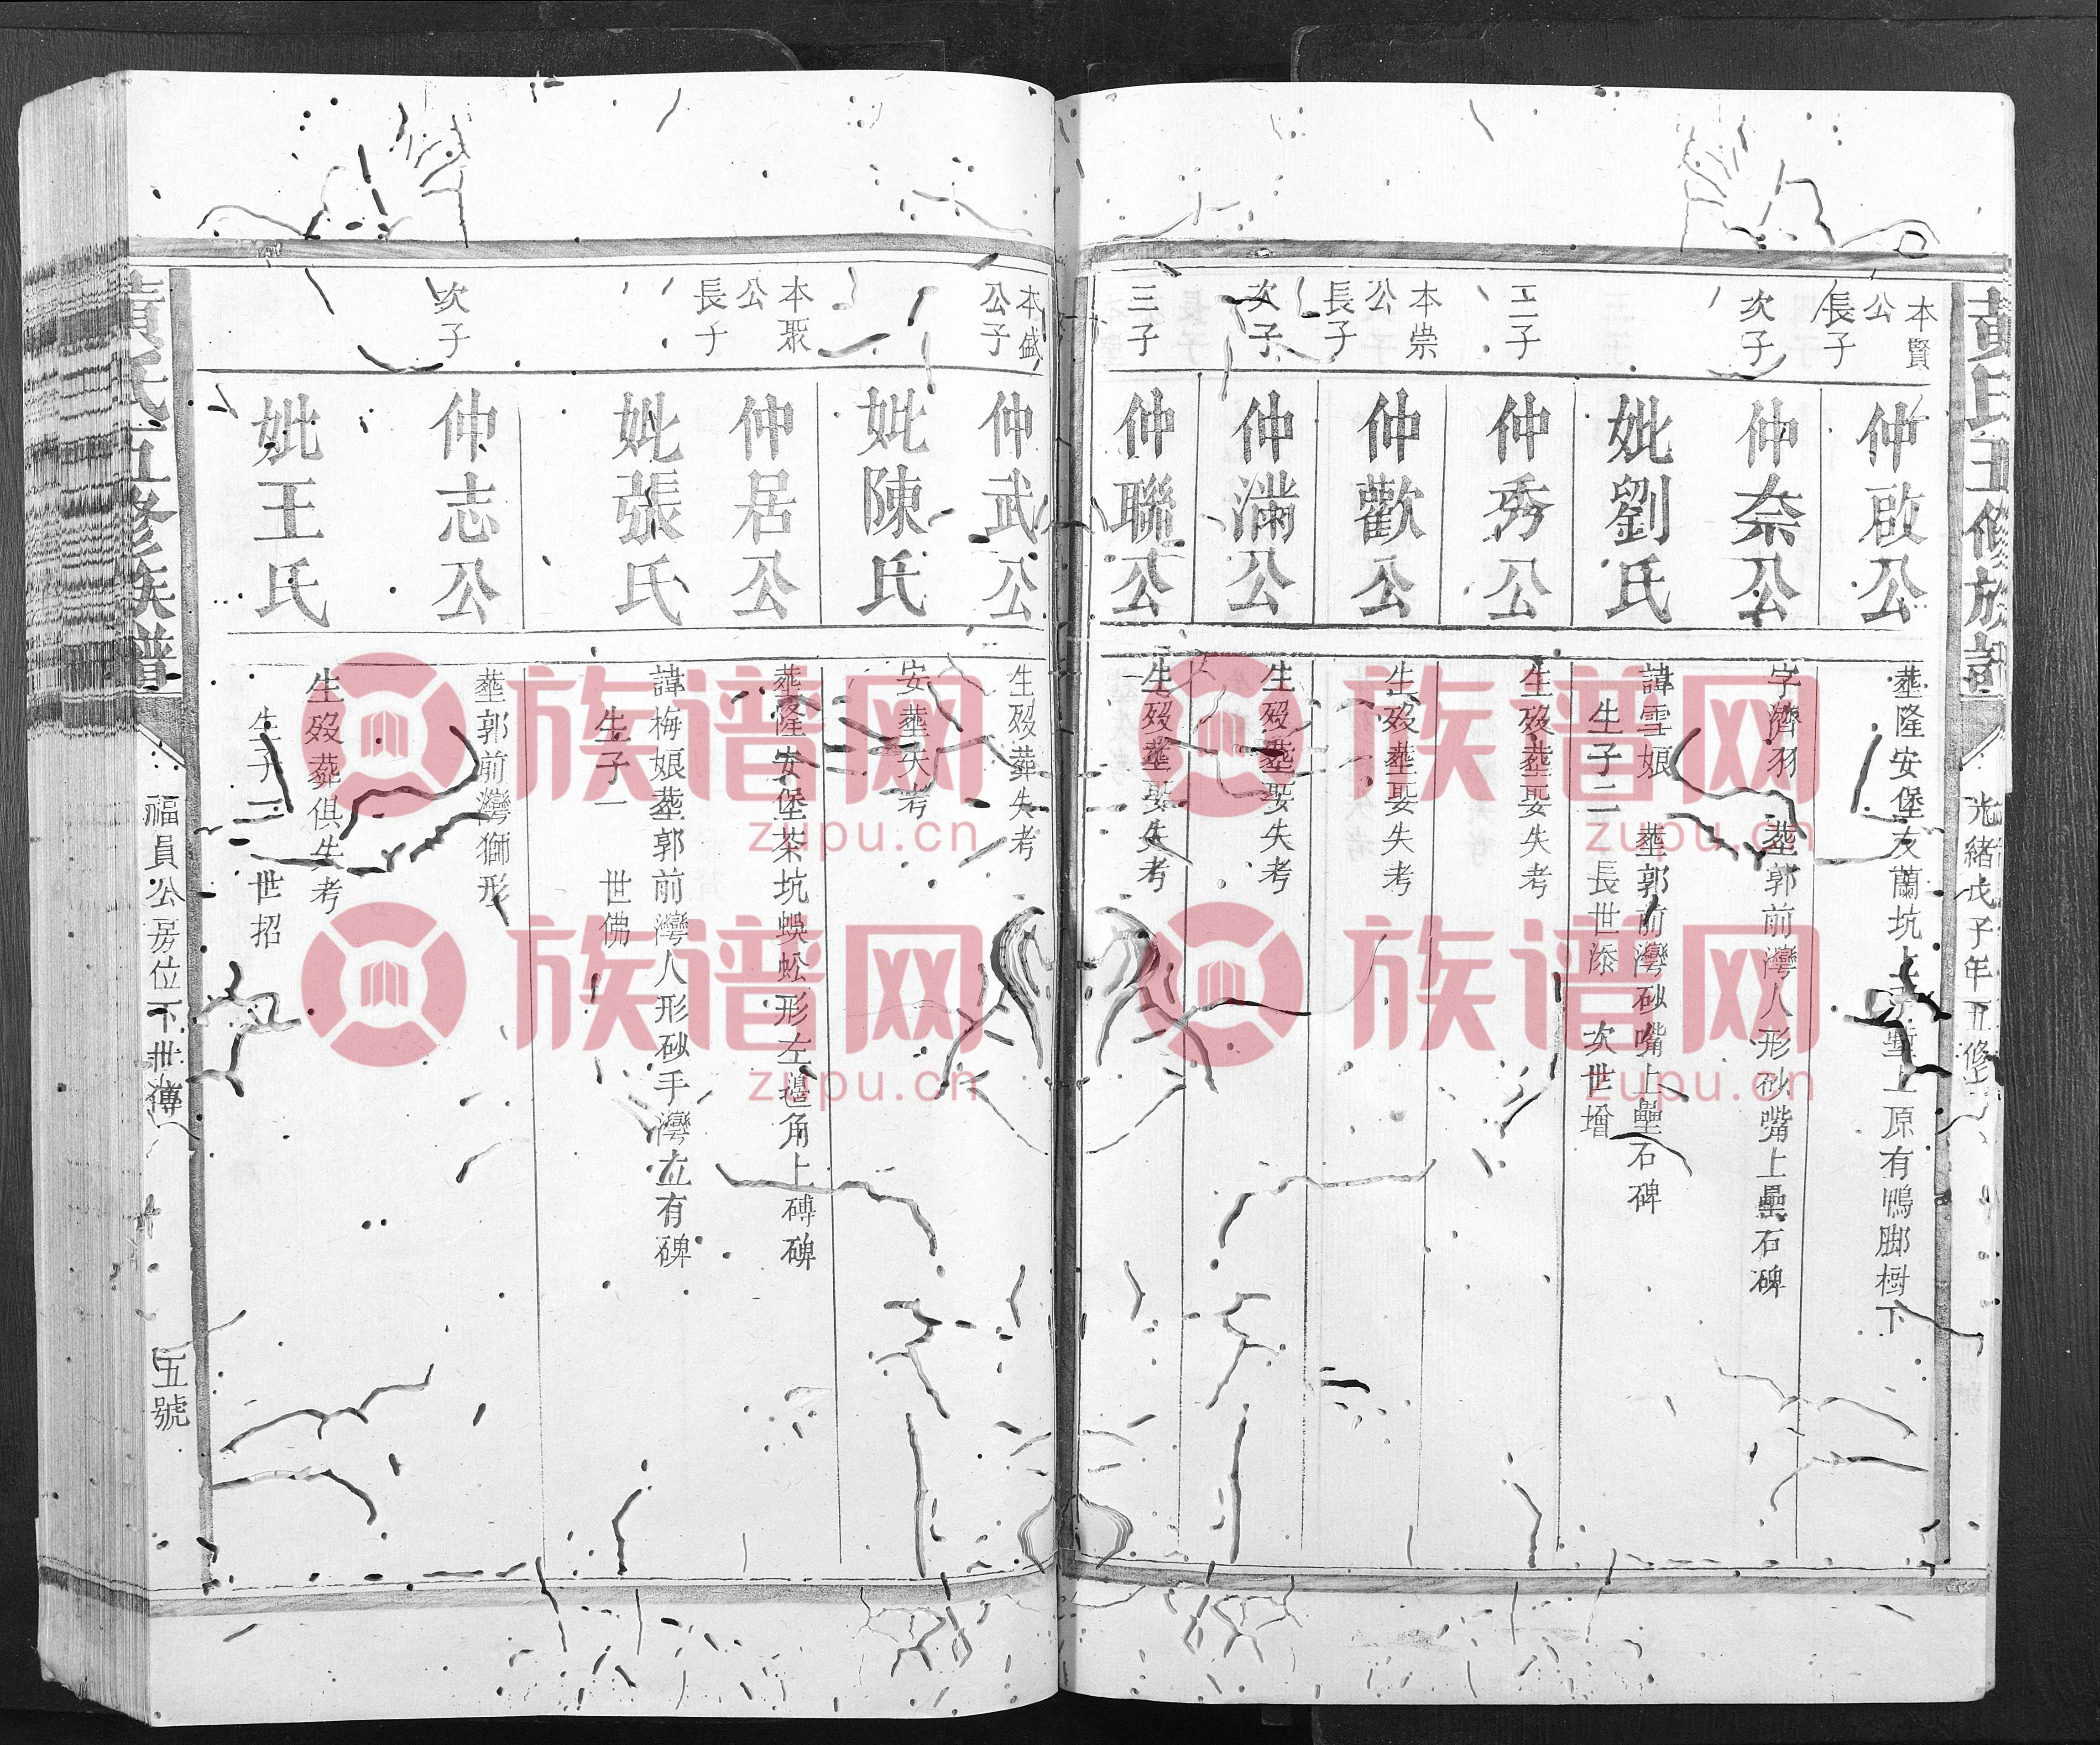 黃氏五修族譜
光緒戊子年五修
本賢
公
長子
仲啟公
葬隆安堡友蘭坑
塹上原有鴨脚樹下
次子
仲奈公
字濟羽 葬郭前灣人形砂嘴上壘石碑
妣劉氏
諱雪娘 葬郭前灣砂嘴上壘石碑
生子二 長世添 次世增
三子
仲秀公
生歿葬娶失考
本崇
公
長子
仲歡公
生歿葬娶失考
次子
仲滿公
生歿葬娶失考
三子
仲聯公
生歿葬娶失考
本盛
公子
仲武公
生歿葬失考
妣陳氏
安葬失考
本聚
公
長子
仲居公
葬隆安堡茶坑蜈蚣形左邉角上磚碑
妣張氏
諱梅娘葬郭前灣人形砂手灣立有碑
生子一 世佛
次子
仲志公
葬郭前灣獅形
妣王氏
生歿葬俱失考
生子一 世招
黃氏五修族譜
福員公房位下世傳
五號
族谱网
zupu.cn
族谱网
zupu.cn
族谱网
zupu.cn
族谱网
zupu.cn